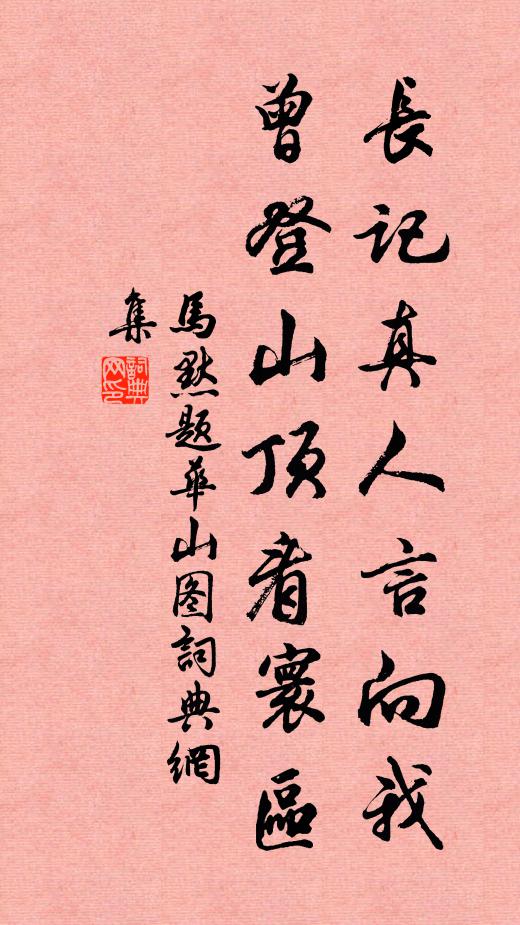 長记真人言向我
曾登山顶看寰區
馬默题華山图詞典網
集
詞典
网印